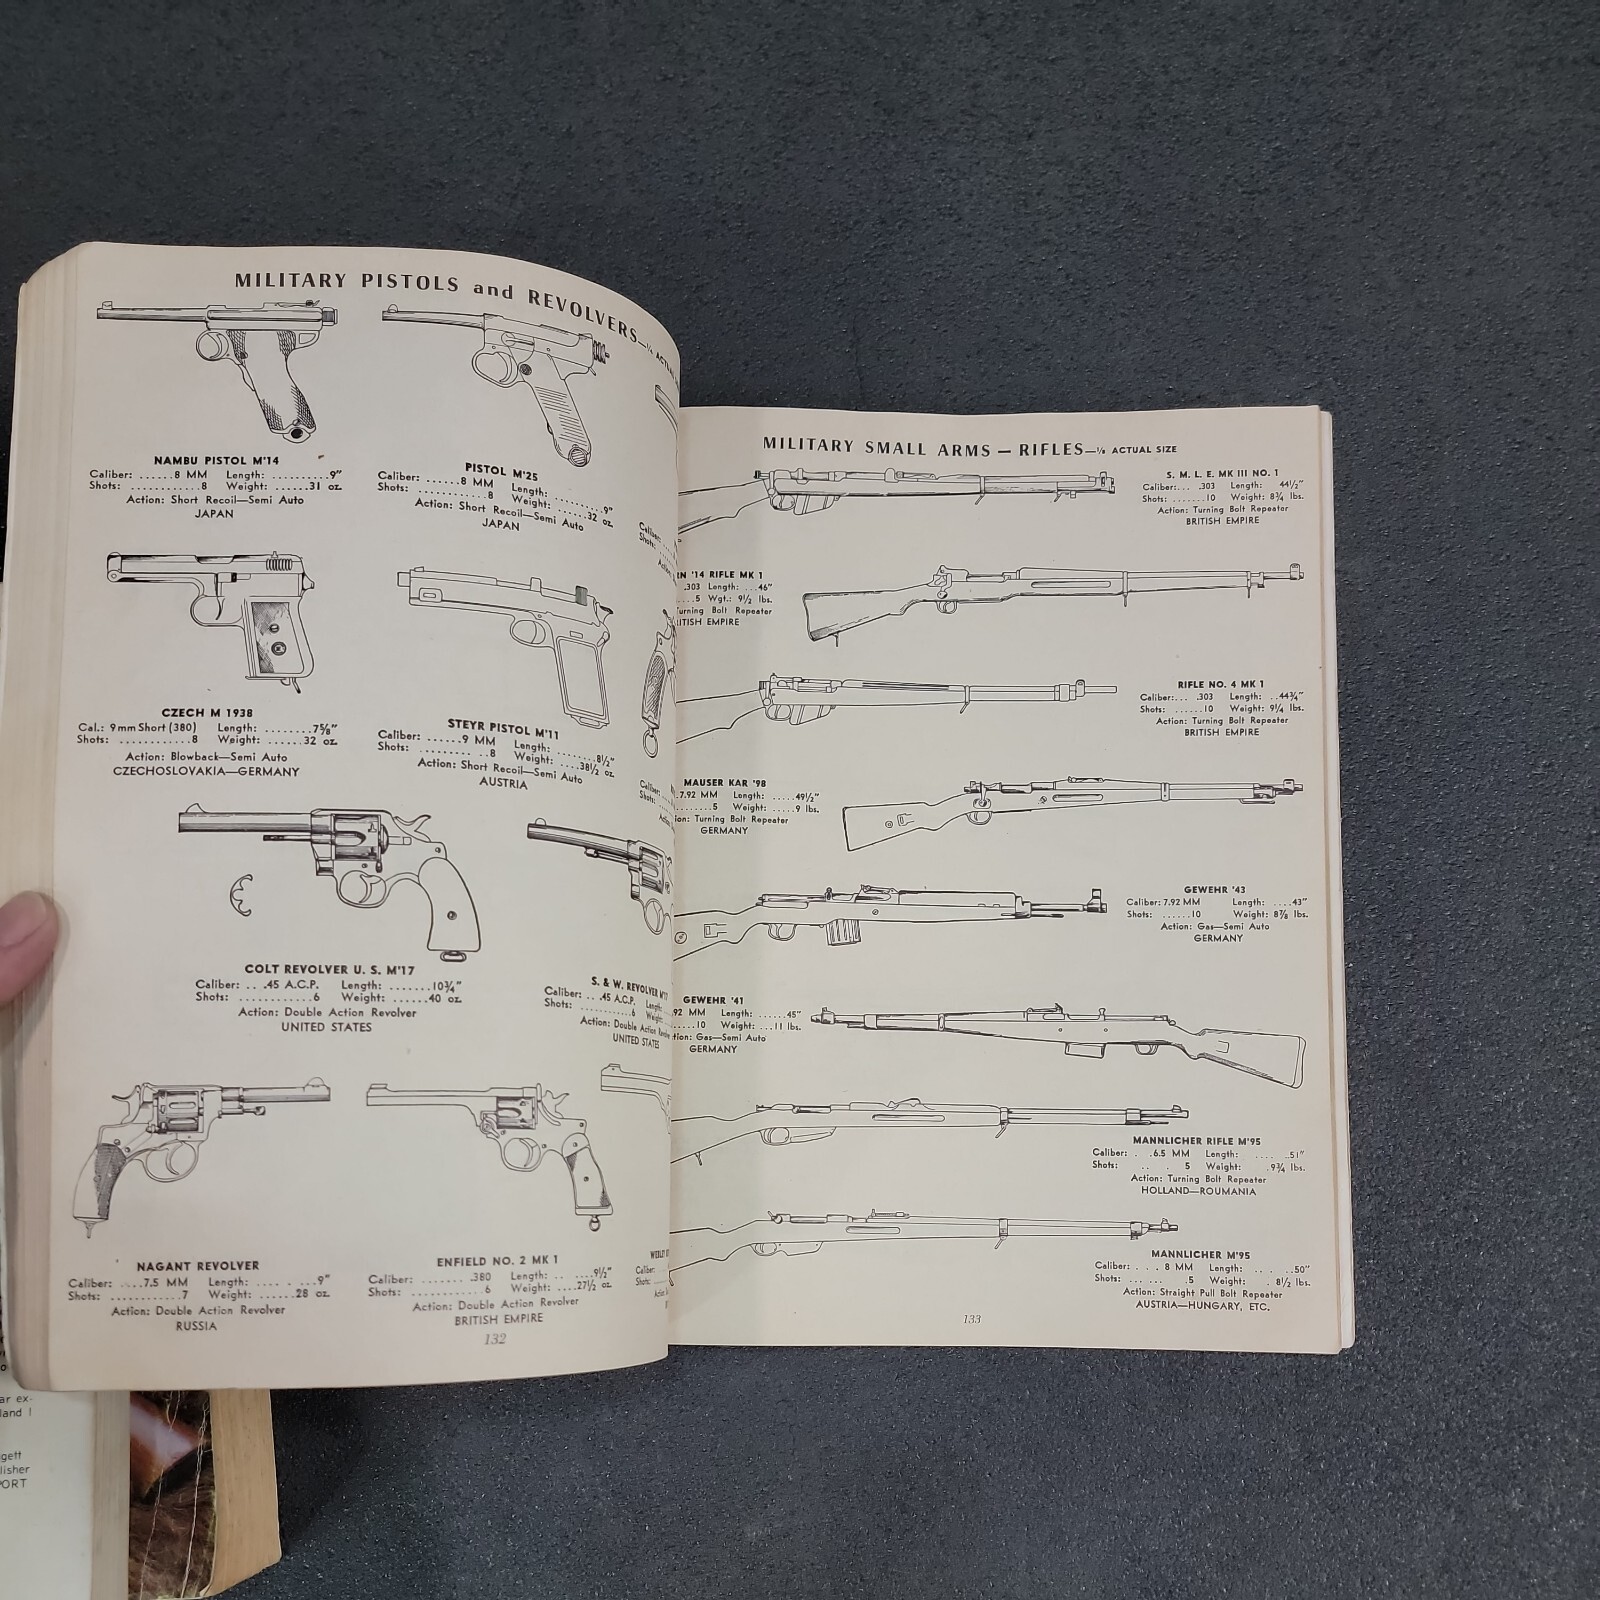 MILITARY PISTOLS and REVOLVERS—¼ ACTUAL
NAMBU PISTOL M'14
Caliber: ......8 MM Length: ..........9"
Shots: ..............8 Weight: ......31 oz.
Action: Short Recoil—Semi Auto
JAPAN
PISTOL M'25
Caliber: ......8 MM Length: ..........9"
Shots: ..............8 Weight: ......32 oz.
Action: Short Recoil—Semi Auto
JAPAN
CZECH M 1938
Cal.: 9mm Short (380) Length: ........7⅝"
Shots: ............8 Weight: ......32 oz.
Action: Blowback—Semi Auto
CZECHOSLOVAKIA—GERMANY
STEYR PISTOL M'11
Caliber: ......9 MM Length: ........8½"
Shots: ......... ..8 Weight: ....38½ oz.
Action: Short Recoil—Semi Auto
AUSTRIA
COLT REVOLVER U. S. M'17
Caliber: .. .45 A.C.P. Length: .......10¾"
Shots: ............6 Weight: ......40 oz.
Action: Double Action Revolver
UNITED STATES
S. & W. REVOLVER M'17
Caliber: .. .45 A.C.P. Length:
Shots: ............6
Action: Double Action
UNITED STATES
NAGANT REVOLVER
Caliber: ....7.5 MM Length: .... . ...9"
Shots: ...........7 Weight: ......28 oz.
Action: Double Action Revolver
RUSSIA
ENFIELD NO. 2 MK 1
Caliber: ....... .380 Length: .. ....9½"
Shots: ............6 Weight: ....27½ oz.
Action: Double Action Revolver
BRITISH EMPIRE
132
MILITARY SMALL ARMS — RIFLES—⅛ ACTUAL SIZE
S. M. L. E. MK III NO. 1
Caliber:... .303 Length: 44½"
Shots: .......10 Weight: 8¾ lbs.
Action: Turning Bolt Repeater
BRITISH EMPIRE
'14 RIFLE MK 1
.303 Length: ...46"
.....5 Wgt.: 9½ lbs.
Turning Bolt Repeater
ITISH EMPIRE
RIFLE NO. 4 MK 1
Caliber:... .303 Length: ..44¾"
Shots: .......10 Weight: 9¼ lbs.
Action: Turning Bolt Repeater
BRITISH EMPIRE
MAUSER KAR '98
7.92 MM Length: .....49½"
.......5 Weight: ....9 lbs.
ion: Turning Bolt Repeater
GERMANY
GEWEHR '43
Caliber: 7.92 MM Length: ....43"
Shots: ......10 Weight: 8⅞ lbs.
Action: Gas—Semi Auto
GERMANY
GEWEHR '41
92 MM Length: ......45"
......10 Weight: ...11 lbs.
tion: Gas—Semi Auto
GERMANY
MANNLICHER RIFLE M'95
Caliber: . .6.5 MM Length: .... ..51"
Shots: .. . 5 Weight: .9¾ lbs.
Action: Turning Bolt Repeater
HOLLAND—ROUMANIA
MANNLICHER M'95
Caliber: . . . 8 MM Length: .. . ..50"
Shots: ... ... .5 Weight: . 8½ lbs.
Action: Straight Pull Bolt Repeater
AUSTRIA—HUNGARY, ETC.
133
ar ex-
land I
gett
lisher
PORT